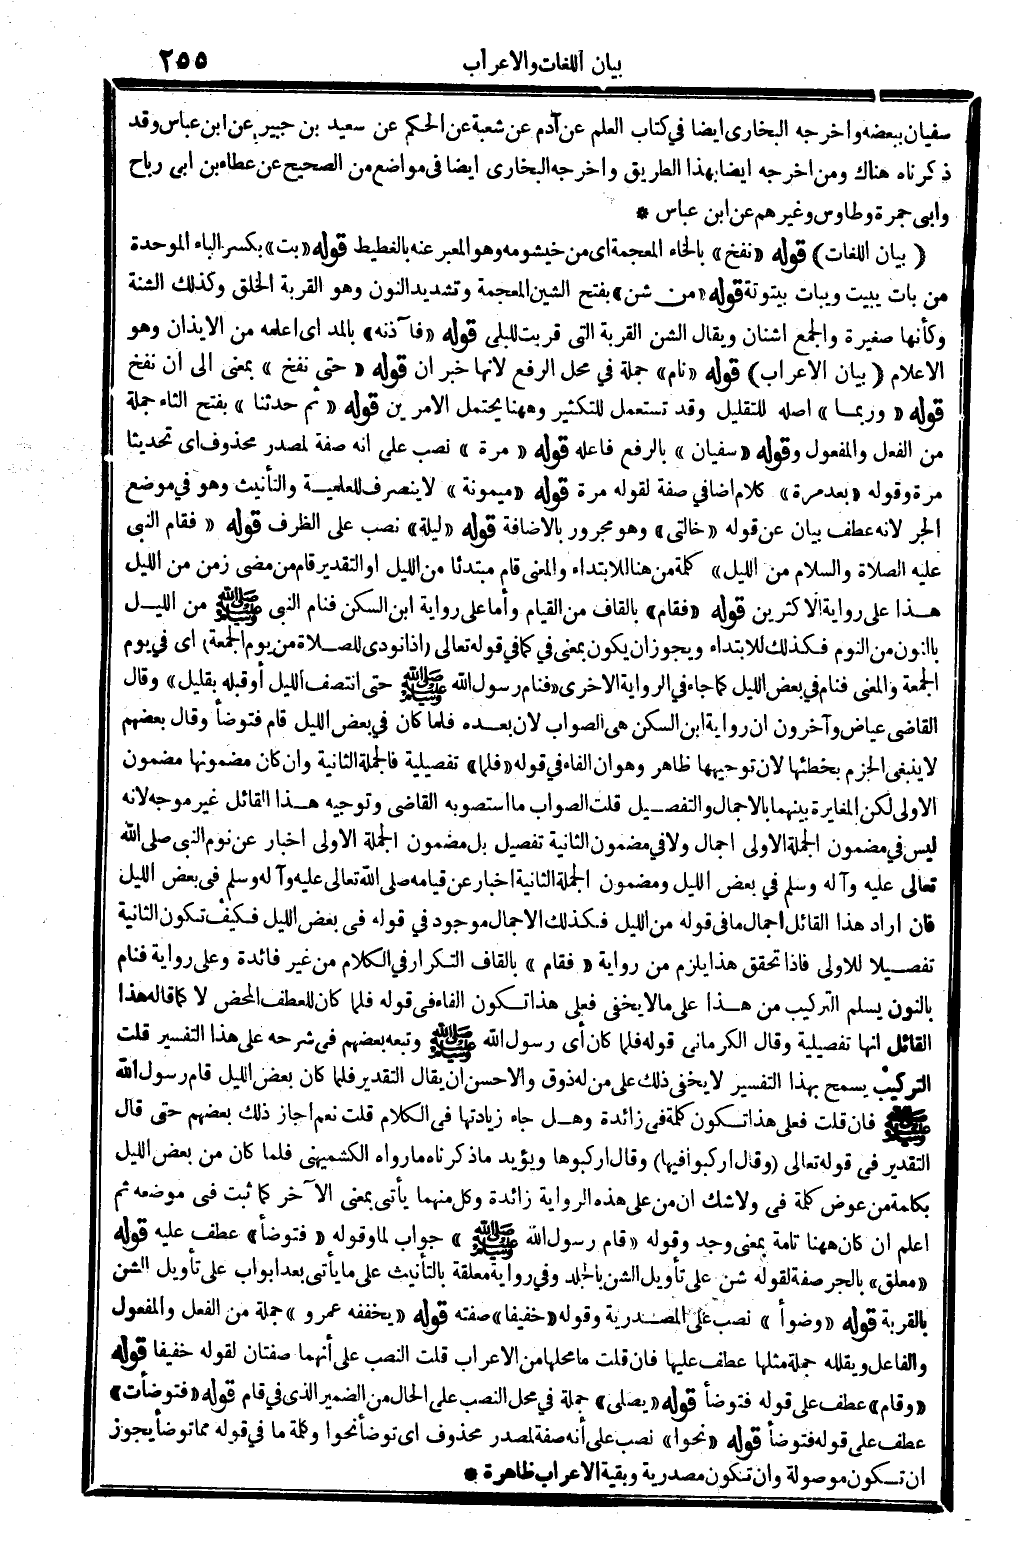 بيان اللغات والاعراب ٢٥٥
سفيان ببعضه واخرجه البخارى ايضا في كتاب العلم عن آدم عن شعبة عن الحكم عن سعيد بن جبير عن ابن عباس وقد
ذكرناه هناك ومن اخرجه ايضا بهذا الطريق واخرجه البخارى ايضا فى مواضع من الصحيح عن عطاء بن ابى رباح
وابى جمرة وطاوس وغيرهم عن ابن عباس *
( بيان اللغات) قوله «نفخ» بالخاء المعجمة اى من خيشومه وهو المعبر عنه بالغطيط قوله «بت» بكسر الباء الموحدة
من بات يبيت ويبات بيتوتة قوله «من شن» بفتح الشين المعجمة وتشديد النون وهو القربة الخلق وكذلك الشنة
وكأنها صغيرة والجمع اشنان ويقال الشن القربة التى قربت للبلى قوله «فآذنه» بالمد اى اعلمه من الايذان وهو
الاعلام ( بيان الاعراب) قوله «نام» جملة في محل الرفع لانها خبر ان قوله « حتى نفخ » بمعنى الى ان نفخ
قوله « وربمـا » اصله للتقليل وقد تستعمل للتكثير وههنا يحتمل الامرين قوله « ثم حدثنا » بفتح الثاء جملة
من الفعل والمفعول وقوله «سفيان » بالرفع فاعله قوله « مرة » نصب على انه صفة لمصدر محذوف اى تحديثا
مرة وقوله «بعد مرة» كلام اضافي صفة لقوله مرة قوله «ميمونة » لا ينصرف للعلمية والتأنيث وهو في موضع
الجر لانه عطف بيان عن قوله «خالتى» وهو مجرور بالاضافة قوله «ليلة» نصب على الظرف قوله « فقام النبى
عليه الصلاة والسلام من الليل» كلمة من هنا للابتداء والمعنى قام مبتدئا من الليل او التقدير قام من مضى زمن من الليل
هـذا على رواية الاكثرين قوله «فقام» بالقاف من القيام وأما على رواية ابن السكن فنام النبى ﷺ من الليـل
بالنون من النوم فكذلك للابتداء ويجوز ان يكون بمعنى فى كما في قوله تعالى (اذا نودى للصـلاة من يوم الجمعة) اى فى يوم
الجمعة والمعنى فنام في بعض الليل كما جاء في الرواية الاخرى «فنام رسول الله ﷺ حتى انتصف الليل أو قبله بقليل» وقال
القاضى عياض وآخرون ان رواية ابن السكن هى الصواب لان بعـده فلما كان في بعض الليل قام فتوضأ وقال بعضهم
لا ينبغى الجزم بخطئها لان توجيهها ظاهر وهو ان الفاء في قوله «فلما» تفصيلية فالجملة الثانية وان كان مضمونها مضمون
الاولى لكن المغايرة بينهما بالاجمال والتفصـيل قلت الصواب ما استصوبه القاضى وتوجيه هـذا القائل غير موجه لانه
ليس في مضمون الجملة الاولى اجمال ولا في مضمون الثانية تفصيل بل مضمون الجملة الاولى اخبار عن نوم النبى صلى الله
تعالى عليه وآله وسلم في بعض الليل ومضمون الجملة الثانية اخبار عن قيامه صلى الله تعالى عليه وآله وسلم فى بعض الليل
فان اراد هذا القائل اجمال ما فى قوله من الليل فكذلك الاجمال موجود في قوله فى بعض الليل فكيف تكون الثانية
تفصـيلا للاولى فاذا تحقق هذا يلزم من رواية « فقام » بالقاف التكرار في الكلام من غير فائدة وعلى رواية فنام
بالنون يسلم التركيب من هـذا على ما لا يخفى فعلى هذا تـكون الفاء فى قوله فلما كان للعطف المحض لا كما قاله هذا
القائل انها تفصيلية وقال الكرمانى قوله فلما كان أى رسول الله ﷺ وتبعه بعضهم فى شرحه على هذا التفسير قلت
التركيب يسمح بهذا التفسير لا يخفى ذلك على من له ذوق والاحسن ان يقال التقدير فلما كان بعض الليل قام رسول الله
ﷺ فان قلت فعلى هذا تـكون كلمة فى زائدة وهـل جاء زيادتها فى الكلام قلت نعم اجاز ذلك بعضهم حتى قال
التقدير فى قوله تعالى (وقال اركبوا فيها) وقال اركبوها ويؤيد ما ذكرناه ما رواه الكشميهنى فلما كان من بعض الليل
بكلمة من عوض كلمة فى ولا شك ان من على هذه الرواية زائدة وكل منهما يأتى بمعنى الآخر كما ثبت فى موضعه ثم
اعلم ان كان ههنا تامة بمعنى وجد وقوله «قام رسول الله ﷺ » جواب لما وقوله « فتوضأ» عطف عليه قوله
«معلق» بالجر صفة لقوله شن على تأويل الشن بالجلد وفي رواية معلقة بالتأنيث على ما يأتى بعد ابواب على تأويل الشن
بالقربة قوله «وضوأ » نصب على المصـدرية وقوله «خفيفا» صفته قوله «يخففه عمرو » جملة من الفعل والمفعول
والفاعل ويقلله جملة مثلها عطف عليها فان قلت ما محلها من الاعراب قلت النصب على أنهما صفتان لقوله خفيفا قوله
«وقام» عطف على قوله فتوضأ قوله «يصلى» جملة في محل النصب على الحال من الضمير الذى في قام قوله «فتوضأت»
عطف على قوله فتوضأ قوله «نحوا» نصب على أنه صفة لمصدر محذوف اى توضأ نحوا وكلمة ما في قوله مما توضأ يجوز
ان تـكون موصولة وان تـكون مصدرية وبقية الاعراب ظاهرة *